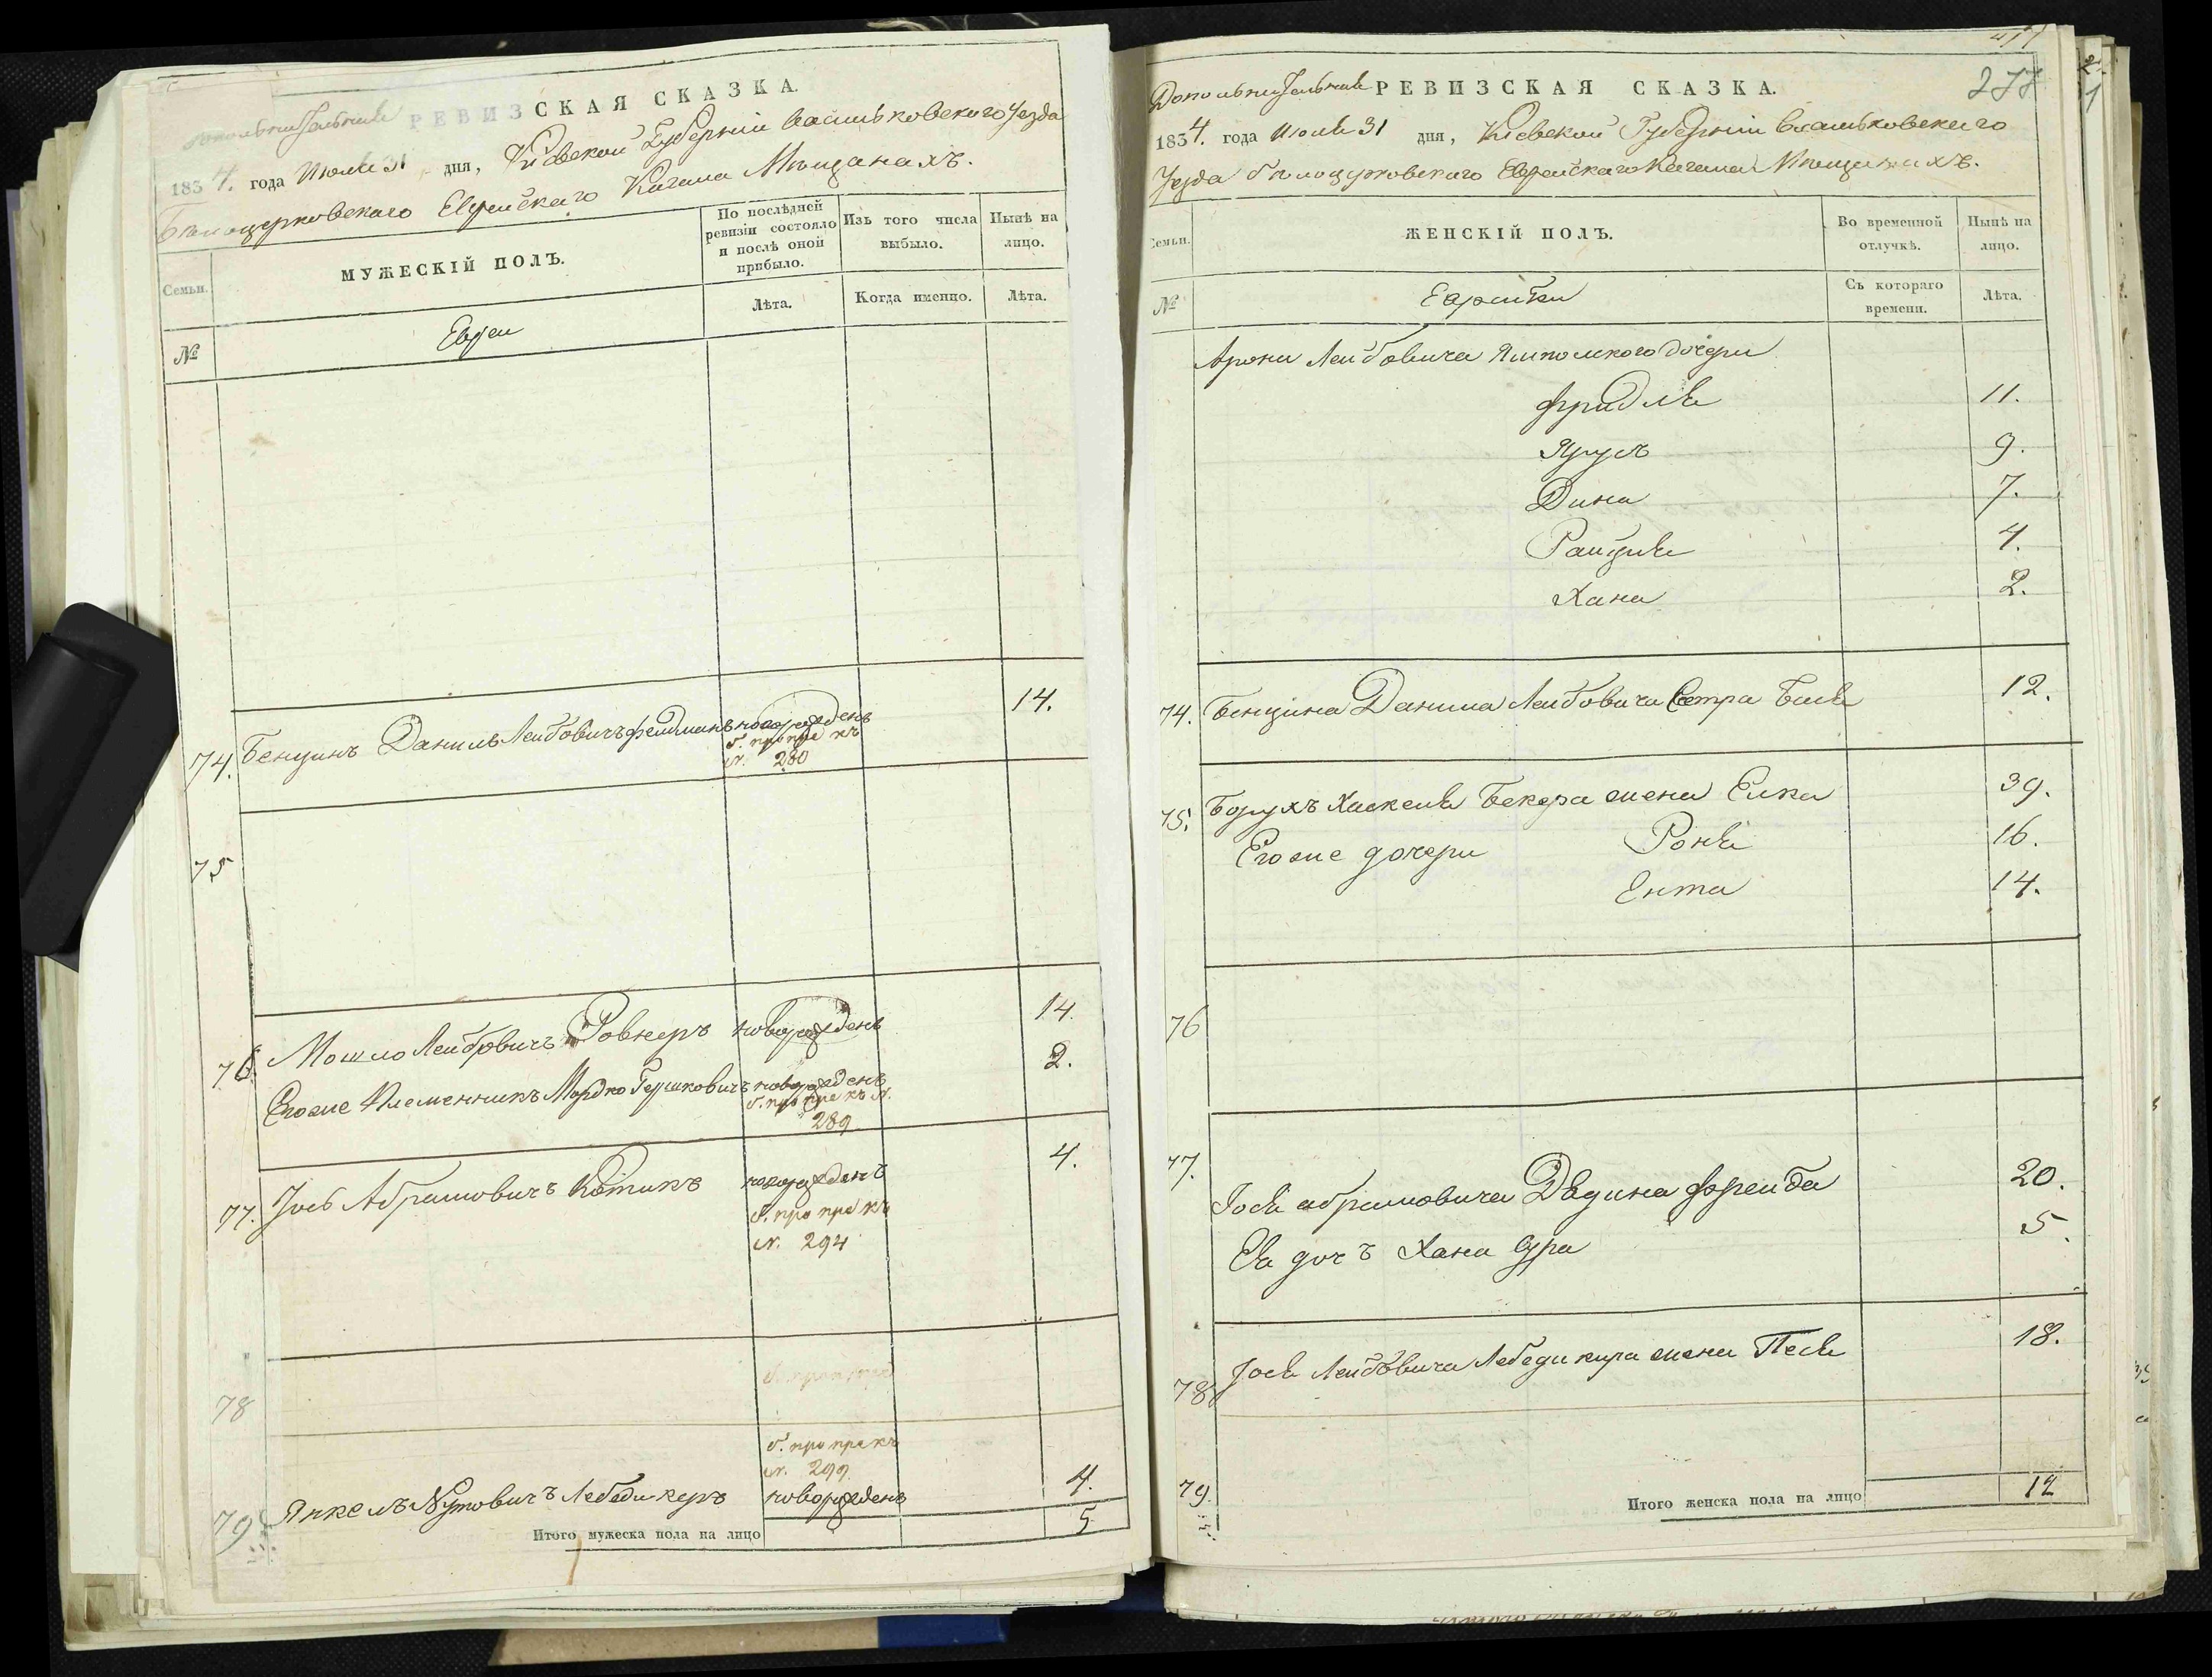 дополнительная РЕВИЗСКАЯ СКАЗКА.
1834. года Июля 31 дня, Кіевской Губерніи Васильковского Уезда
Белоцерковского Еврейскаго Кагала Мещанахъ.
Семьи.
МУЖЕСКІЙ ПОЛЪ.
По послѣдней ревизіи состояло и послѣ оной прибыло.
Изъ того числа выбыло.
Нынѣ на лицо.
№
Евреи
Лѣта.
Когда именно.
Лѣта.
74. Бенцинъ Даниль Лейбовичъ Фелдманъ новорожденъ 14.
п. 280
75
76. Мошко Лейбовичъ Ровнеръ новорожденъ 14.
Егоже Племенникъ Мордко Гершковичъ новорожденъ 2.
289
77. Іось Абрамовичъ Котикъ новорожденъ 4.
N. 294
78
N. 299
79 Янкель Нутовичъ Лебедикеръ новорожденъ 4.
Итого мужеска пола на лицо 5
277
Дополнительная РЕВИЗСКАЯ СКАЗКА.
1834. года Июля 31 дня, Кіевской Губерніи Васильковскаго
Уезда Белоцерковского Еврейскаго Кагала Мещанахъ.
Семьи.
ЖЕНСКІЙ ПОЛЪ.
Во временной отлучкѣ.
Нынѣ на лицо.
№
Еврейки
Съ котораго времени.
Лѣта.
Арона Лейбовича Ямполского дочери
Фридля 11.
9.
Дина 7.
Райзля 4.
Хана 2.
74. Бенцина Данила Лейбовича Сетра Бася 12.
75. Борухъ Хаскеля Бекера жена Елка 39.
Егоже дочери Роня 16.
Ента 14.
76
77. Іося Абрамовича Дядина Фрейда 20.
Ея дочъ Хана Сура 5.
78 Іося Лейбовича Лебедикера жена Песя 18.
79.
Итого женска пола на лицо 12